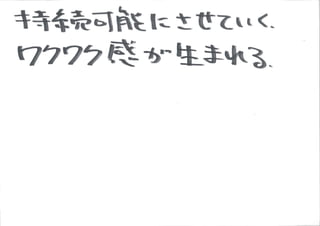 持続可能にさせていく.
ワクワク感が生まれる.